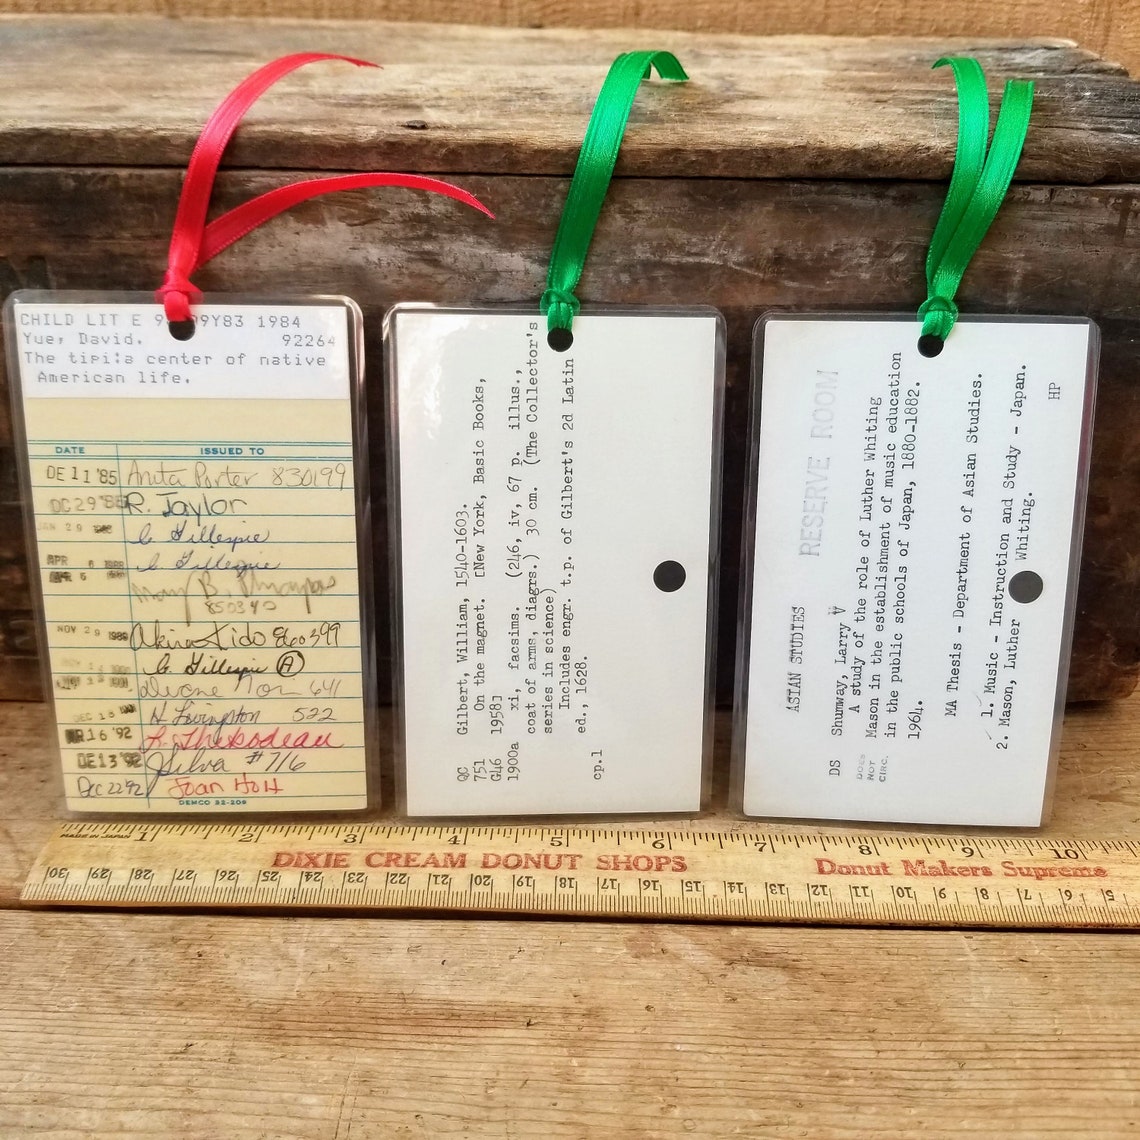 CHILD LIT E 9 99Y83 1984
Yue, David. 92264
The tipi:a center of native
American life.
DATE ISSUED TO
DE 11 '85 Anita Porter 830199
DC 29 '85 R. Taylor
JAN 29 C Gillespie
APR 6 C Gillespie
APR 6 Mary B.
850340
NOV 29 1989 Akira Kido 860399
C Gillespie A
Diane 641
DEC 18 H Livingston 522
R 16 '92 L. Thibodeau
DE 13 '92 Silva #716
Dec 22 92 Joan Holt
DEMCO 32-209
QC Gilbert, William, 1540-1603.
751 On the magnet. [New York, Basic Books,
G46 1958]
1900a xi, facsims. (246, iv, 67 p. illus.,
coat of arms, diagrs.) 30 cm. (The Collector's
series in science)
Includes engr. t.p. of Gilbert's 2d Latin
ed., 1628.
cp.1
ASIAN STUDIES
RESERVE ROOM
DS Shumway, Larry V
DOES A study of the role of Luther Whiting
NOT Mason in the establishment of music education
CIRC. in the public schools of Japan, 1880-1882.
1964.
MA Thesis - Department of Asian Studies.
1. Music - Instruction and Study - Japan.
2. Mason, Luther Whiting.
HP
MADE IN JAPAN 1 2 3 4 5 6 7 8 9 10
DIXIE CREAM DONUT SHOPS Donut Makers Supreme
30 29 28 27 26 25 24 23 22 21 20 19 18 17 16 15 14 13 12 11 10 9 8 7 6 5